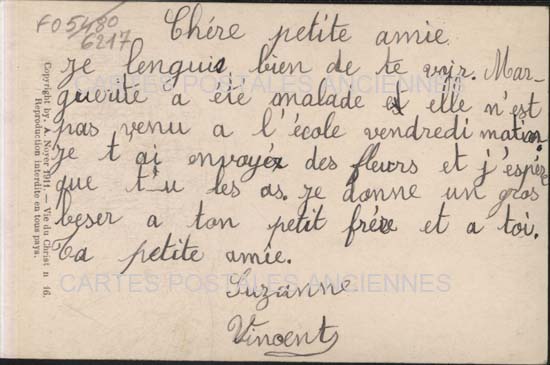 FO 5480
6217
Chére petite amie
je lenguis bien de te voir. Mar-
guerite a éie malade et elle n'est
pas venu a l'école vendredi matin.
je t ai envoyéx des fleurs et j'espére
que t-u les as. je donne un gros
beser a ton petit frére et a toi.
Ta petite amie.
Suzanne
Vincent
Copyright by. A. Noyer 1911. — Vie du Christ n 16.
Reproduction interdite en tous pays.
CARTES POSTALES ANCIENNES
CARTES POSTALES ANCIENNES